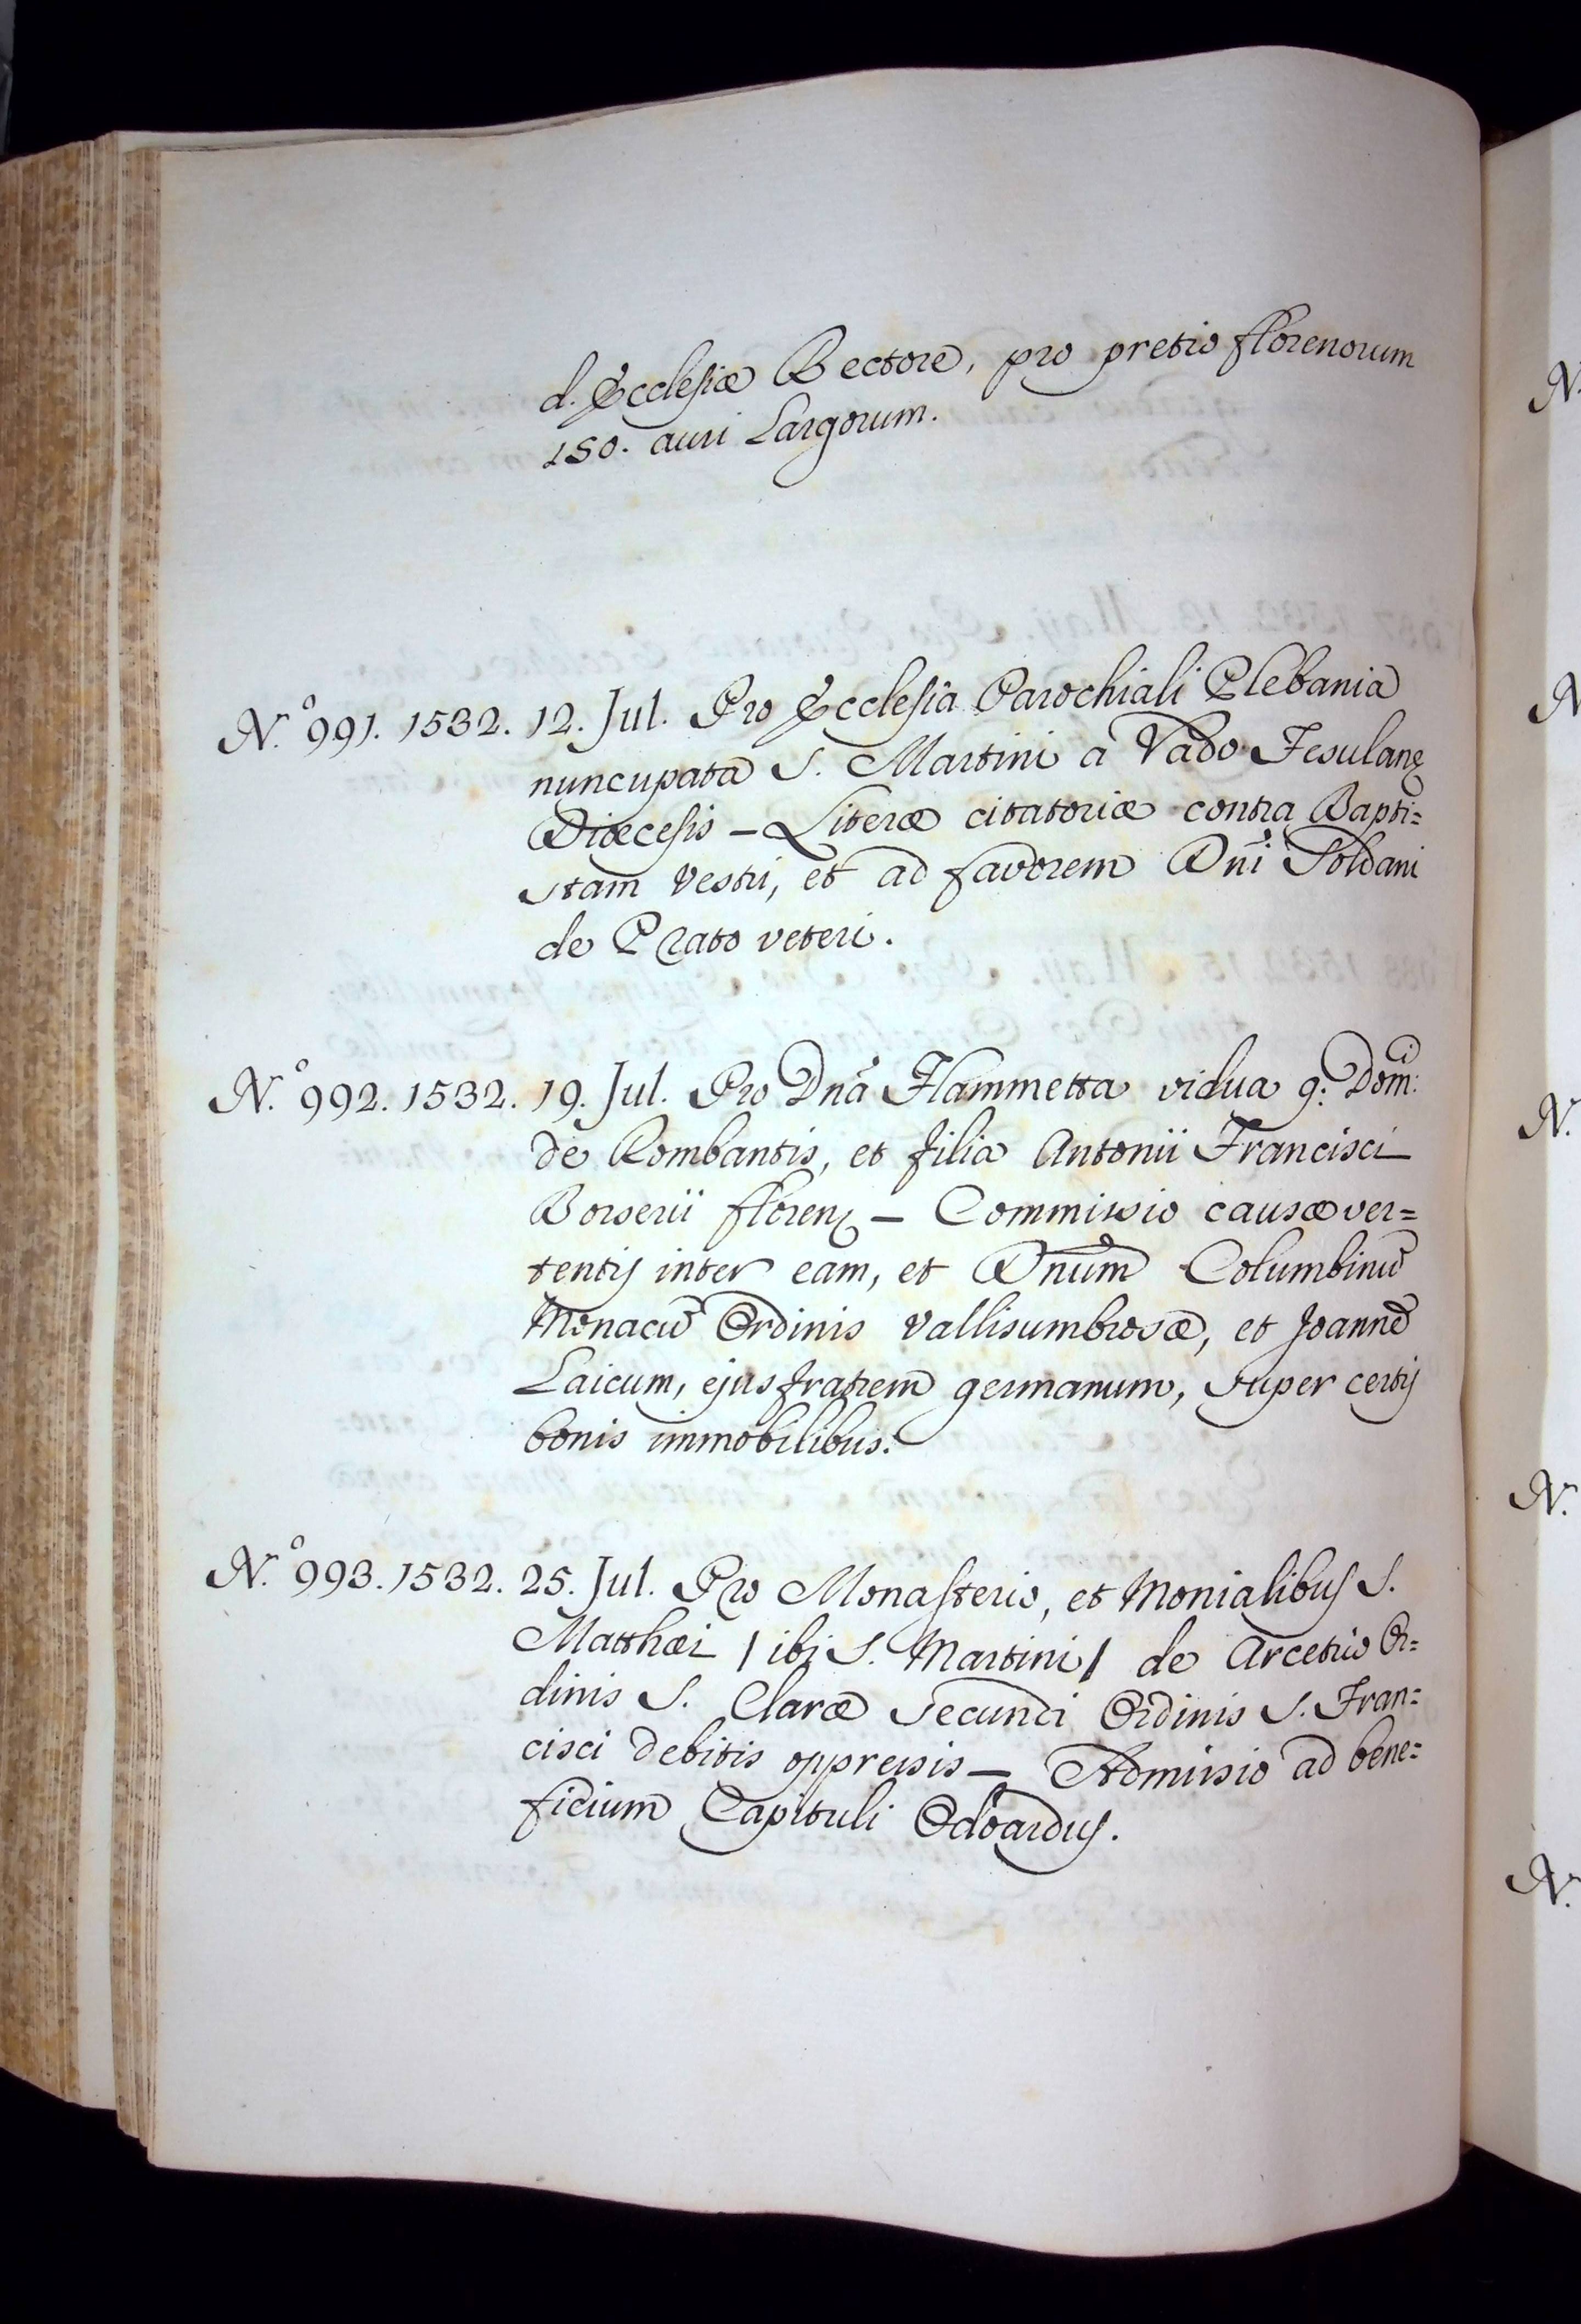 d. Ecclesiæ Rectore, pro pretio florenorum
150. auri Largorum.
N.º 991. 1532. 12. Jul. Pro Ecclesia Parochiali Plebania
nuncupata S. Martini a Vado Fesulanę
Diœcesis – Literæ citatoriæ contra Bapti=
stam Vestri, et ad favorem Dñi Soldani
de Prato veteri.
N.º 992. 1532. 19. Jul. Pro Dnã Flammetta vidua q: Domⁱ:
de Rombantis, et filia Antonii Francisci
Borserii floren – Commissio causæ ver=
tentij inter eam, et Dnũm Columbinũ
Monacũ Ordinis Vallisumbrosæ, et Joannẽ
Laicum, ejus fratrem germanum, super certij
bonis immobilibus.
N.º 993. 1532. 25. Jul. Pro Monasterio, et Monialibus S.
Matthæi / ibi S. Martini / de Arcetrio Or=
dinis S. Claræ Secundi Ordinis S. Fran=
cisci debitis oppressis – Admissio ad bene=
ficium Capituli Odoardus.
N.
N.
N.
N.
N.